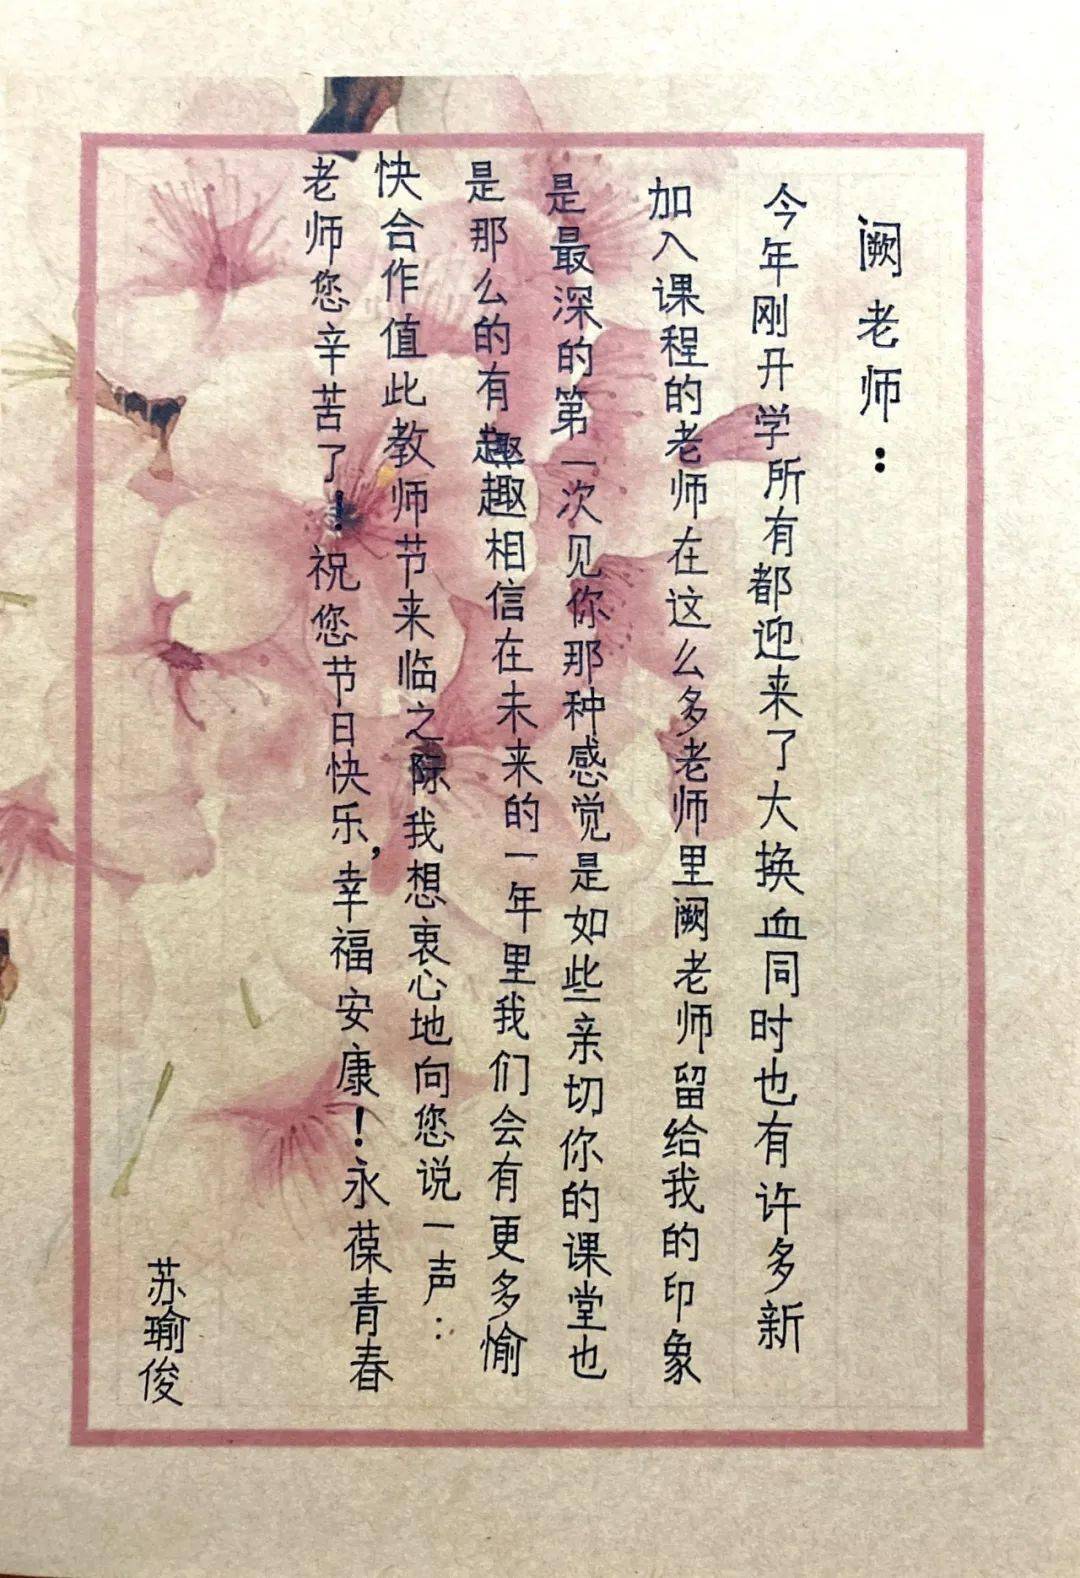 阙老师：
今年刚开学所有都迎来了大换血同时也有许多新
加入课程的老师在这么多老师里阙老师留给我的印象
是最深的第一次见你那种感觉是如些亲切你的课堂也
是那么的有趣相信在未来的一年里我们会有更多愉
快合作值此教师节来临之际我想衷心地向您说一声：
老师您辛苦了！祝您节日快乐，幸福安康！永葆青春
苏瑜俊